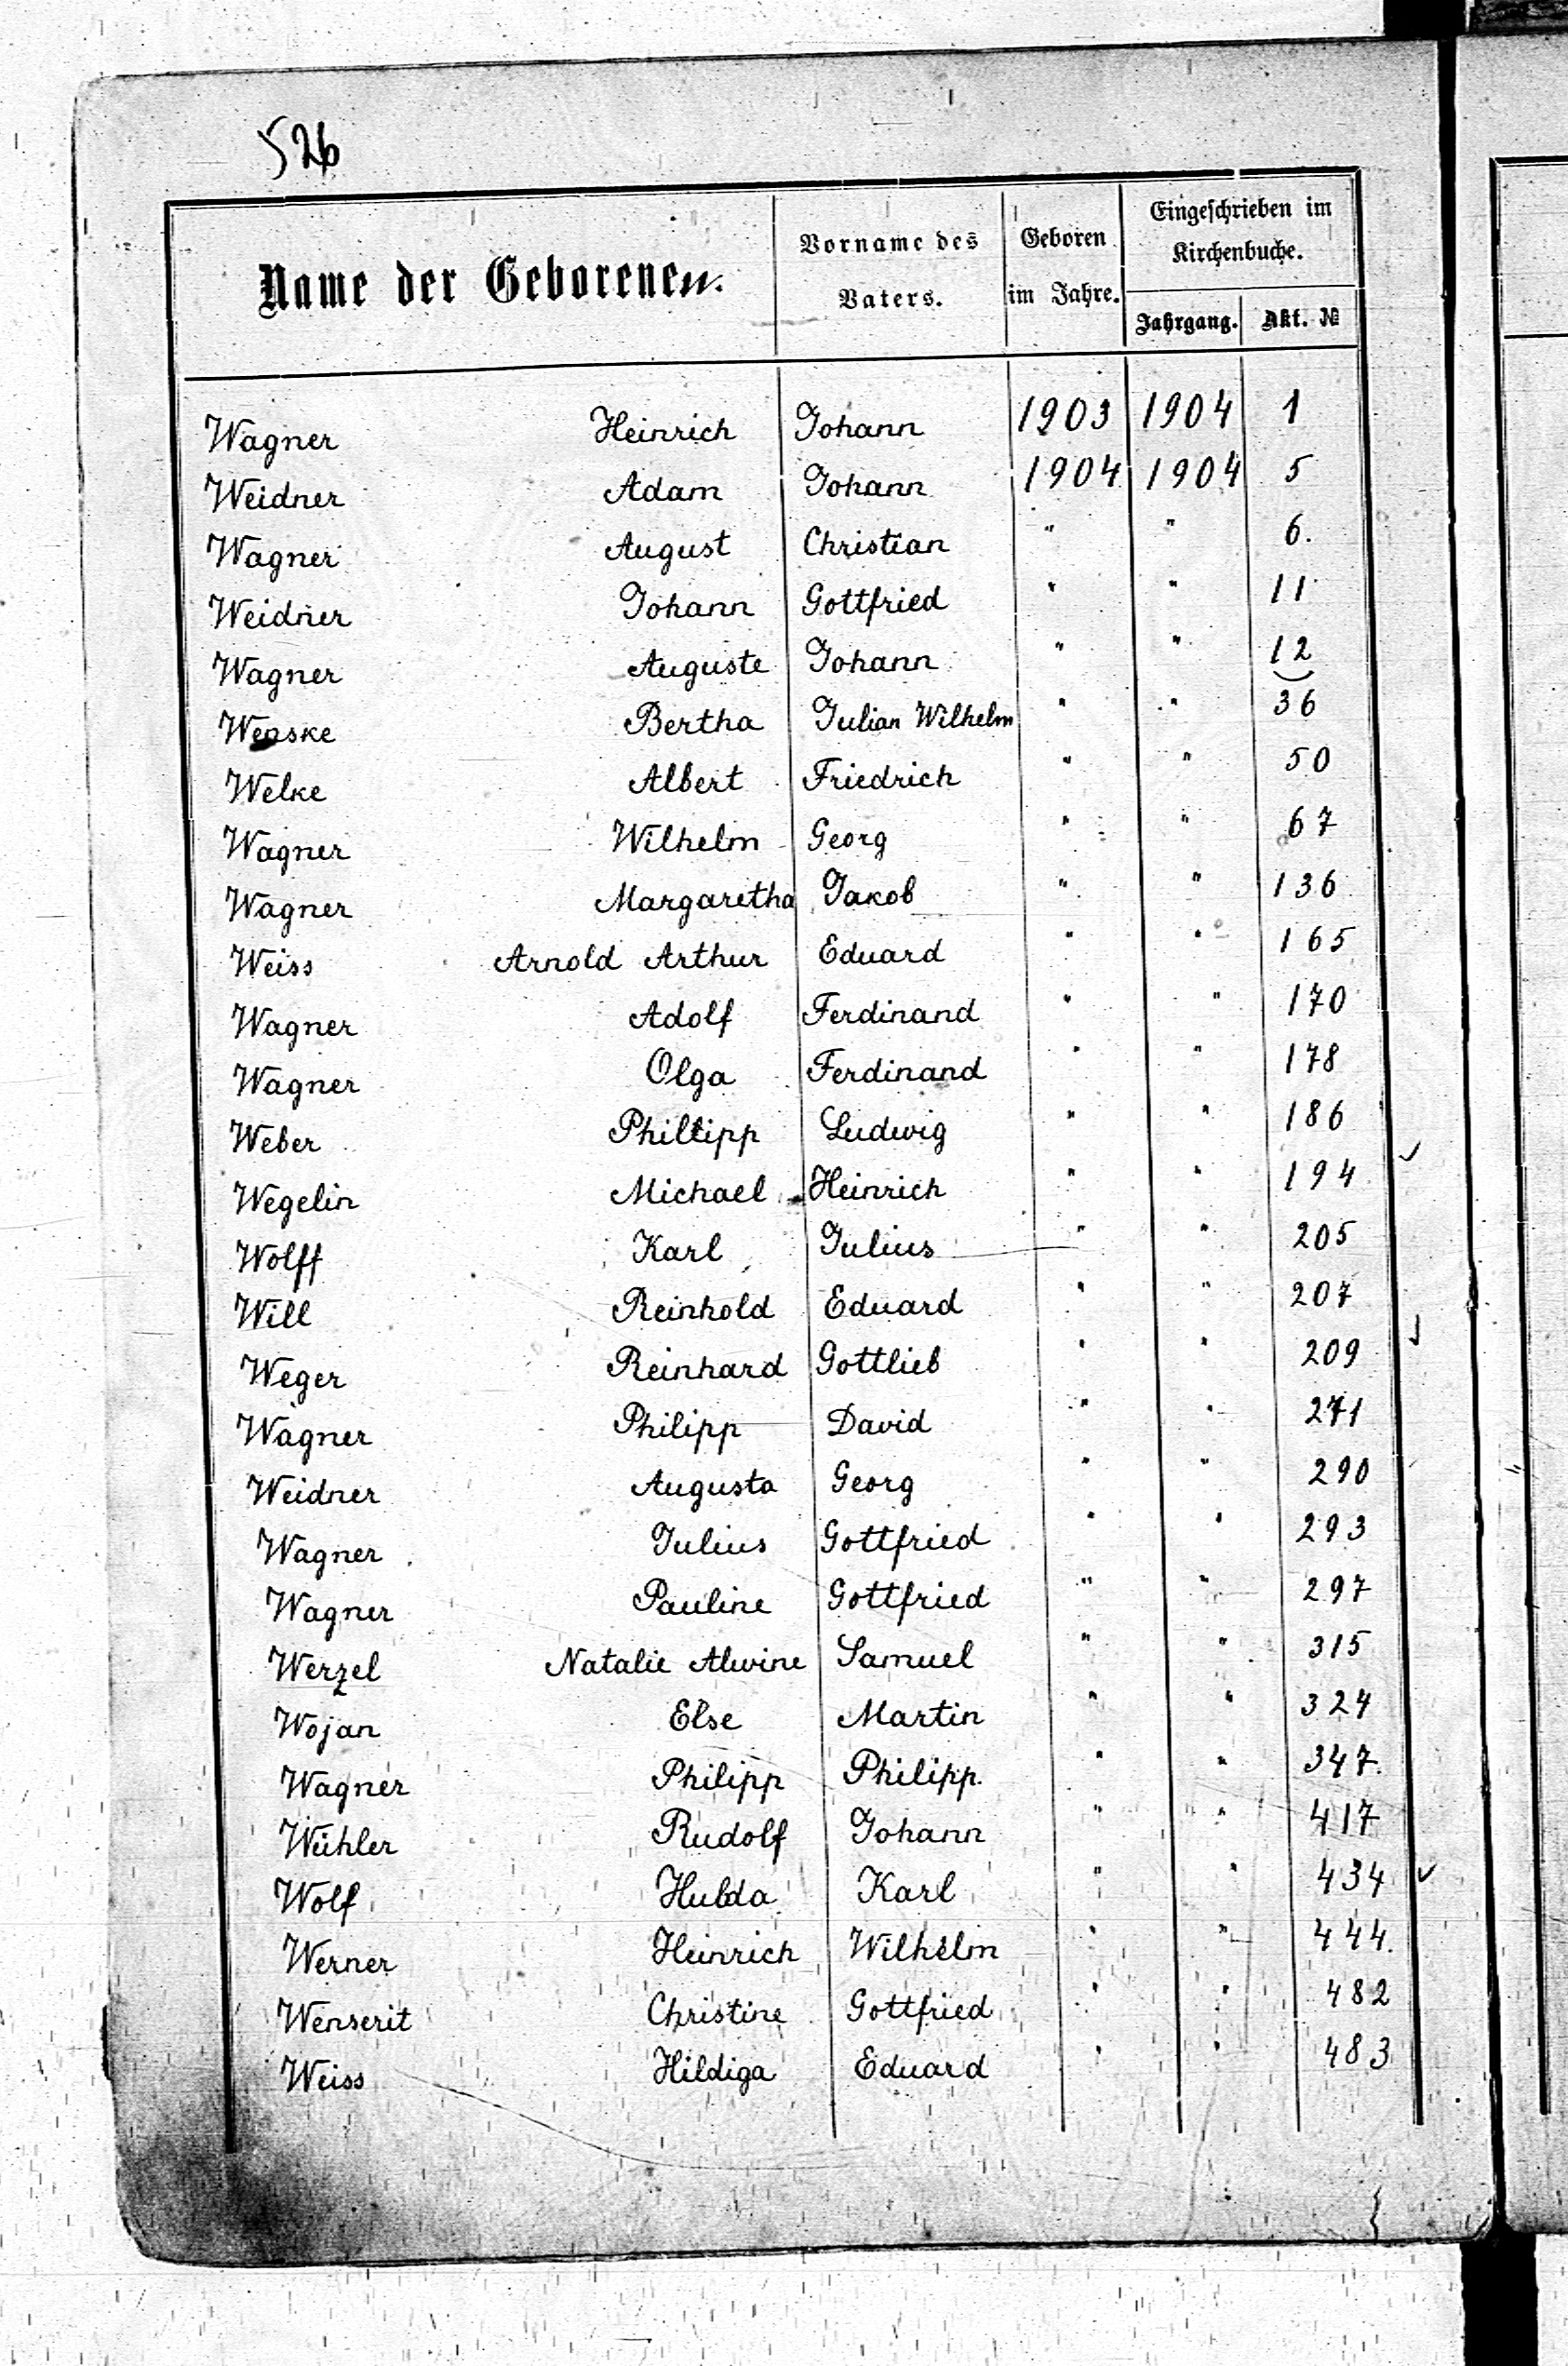 526
Name der Geborenen.
Vorname des Vaters.
Geboren im Jahre.
Eingeschrieben im Kirchenbuche.
Jahrgang. Akt. №
Wagner Heinrich Johann 1903 1904 1
Weidner Adam Johann 1904 1904 5
Wagner August Christian " " 6.
Weidner Johann Gottfried " " 11
Wagner Auguste Johann " " 12
Bertha Julian Wilhelm " " 36
Welke Albert Friedrich " " 50
Wagner Wilhelm Georg " " 67
Wagner Margaretha Jakob " " 136
Weiss Arnold Arthur Eduard " " 165
Wagner Adolf Ferdinand " " 170
Wagner Olga Ferdinand " " 178
Weber Phillipp Ludwig " " 186
Wegelin Michael Heinrich " " 194
Wolff Karl Julius " " 205
Will Reinhold Eduard " " 207
Weger Reinhard Gottlieb " " 209
Wagner Philipp David " " 271
Weidner Augusta Georg " " 290
Wagner Julius Gottfried " " 293
Wagner Pauline Gottfried " " 297
Natalie Alwine Samuel " " 315
Wojan Else Martin " " 324
Wagner Philipp Philipp. " " 347.
Wühler Rudolf Johann " " 417
Wolf Hulda Karl " " 434
Werner Heinrich Wilhelm " " 444.
Wenserit Christine Gottfried " " 482
Weiss Hildiga Eduard " " 483